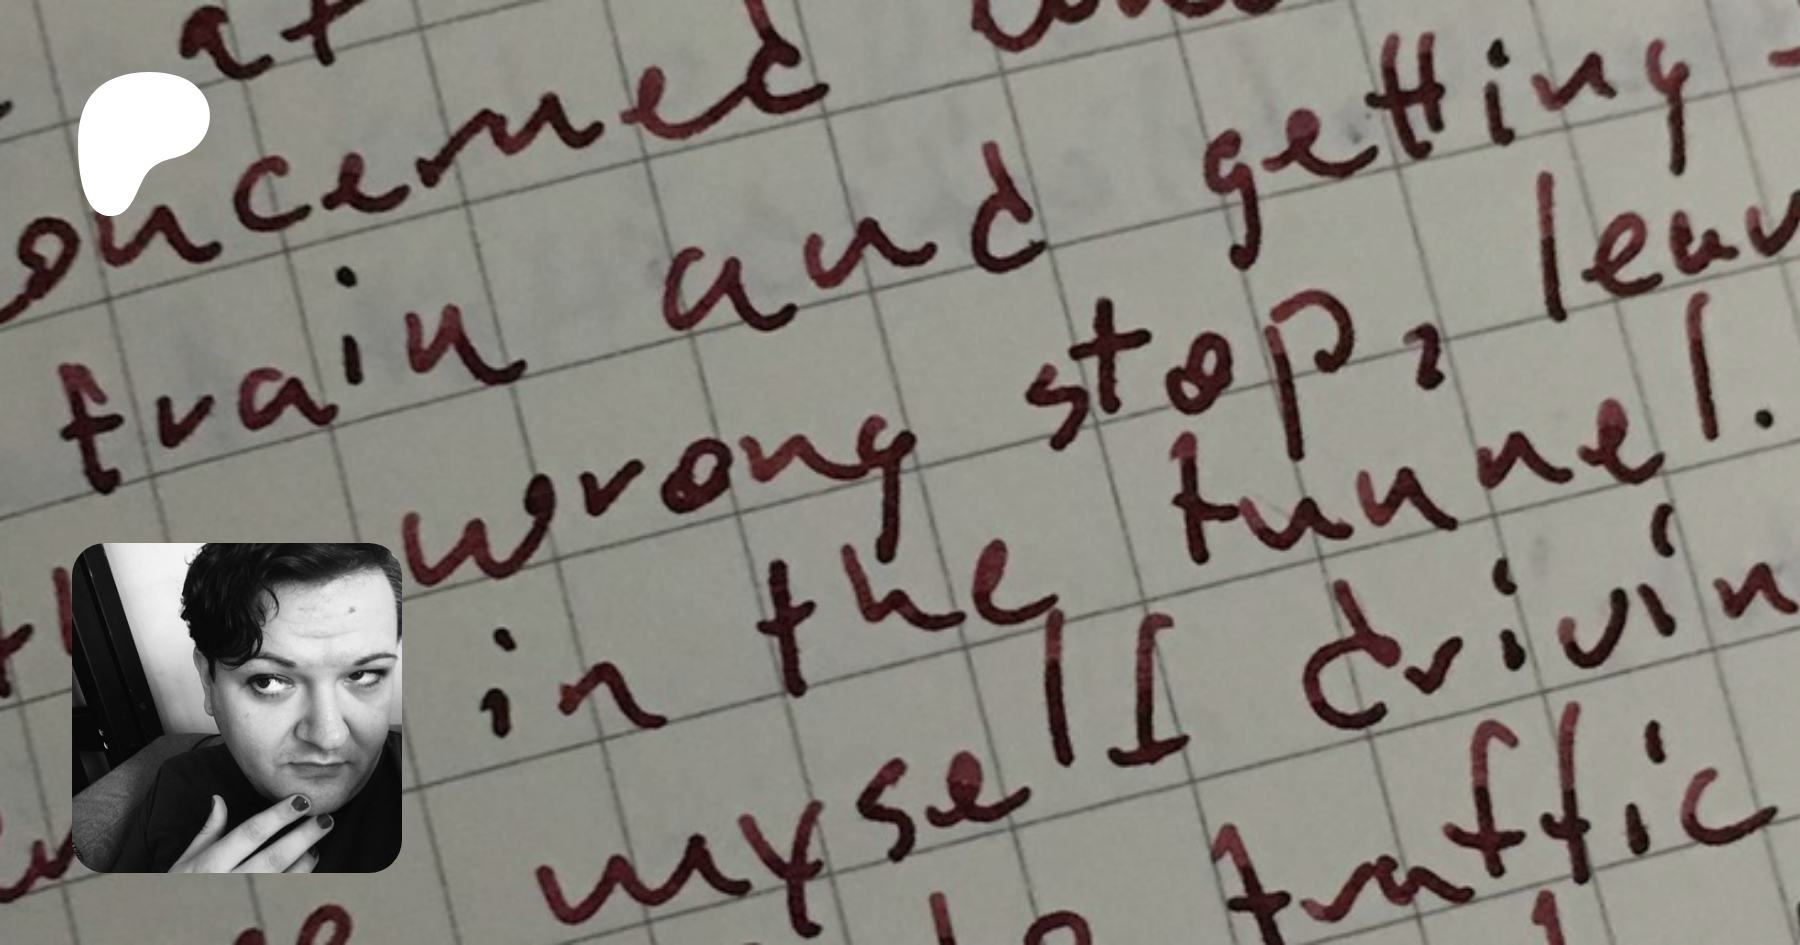 at
concerned
train and getting
wrong stop, leav
in the tunnel.
myself driving
traffic